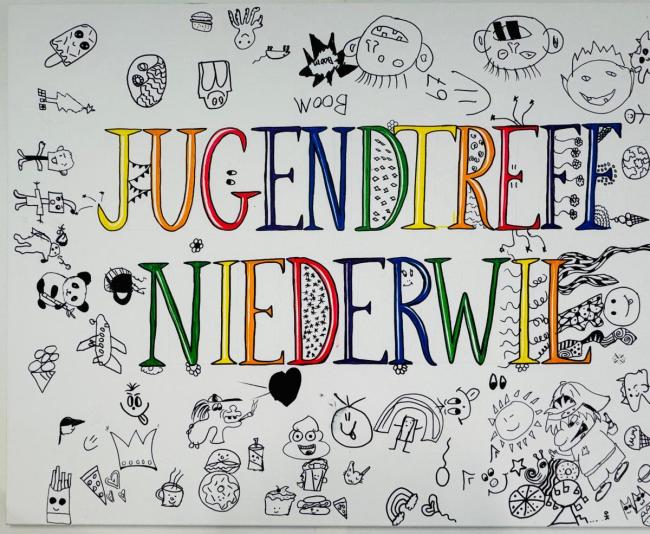 Boom
BOOM
JUGENDTREFF
NIEDERWIL